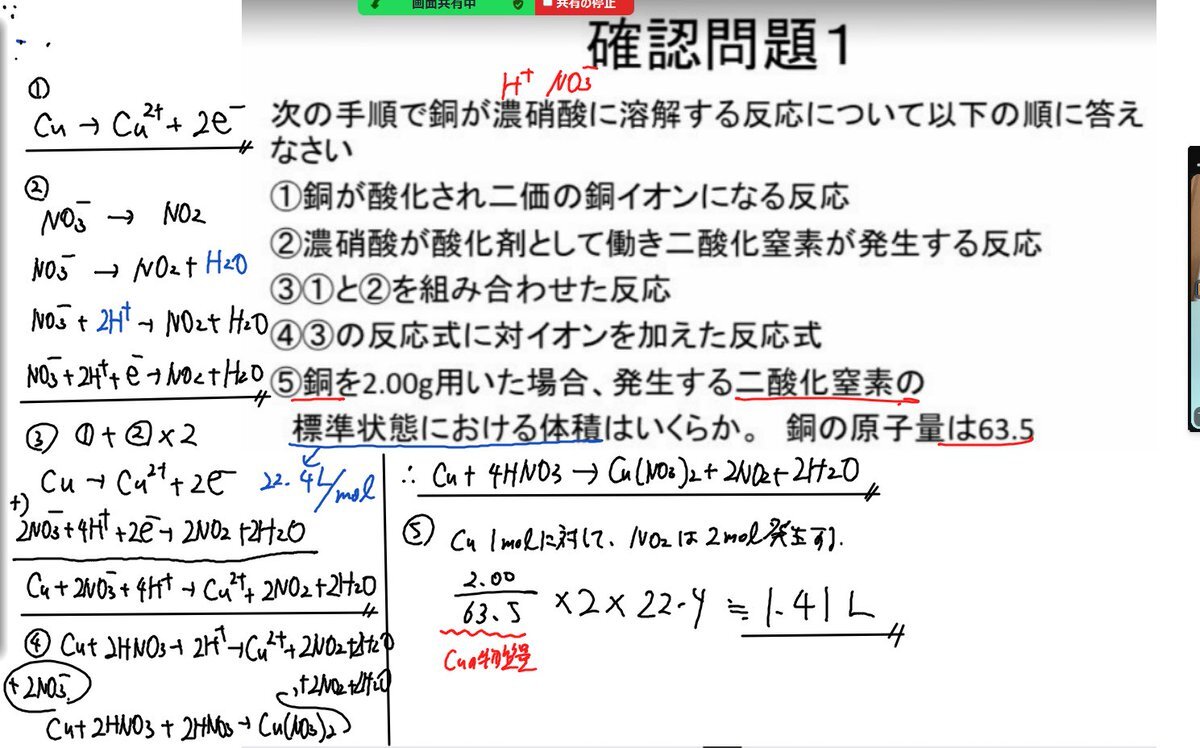 画面共有中
共有の停止
確認問題1
H⁺ NO₃⁻
次の手順で銅が濃硝酸に溶解する反応について以下の順に答え
なさい
①銅が酸化され二価の銅イオンになる反応
②濃硝酸が酸化剤として働き二酸化窒素が発生する反応
③①と②を組み合わせた反応
④③の反応式に対イオンを加えた反応式
⑤銅を2.00g用いた場合、発生する二酸化窒素の
標準状態における体積はいくらか。 銅の原子量は63.5
22.4L/mol
①
Cu → Cu²⁺ + 2e⁻
②
NO₃⁻ → NO₂
NO₃⁻ → NO₂ + H₂O
NO₃⁻ + 2H⁺ → NO₂ + H₂O
NO₃⁻ + 2H⁺ + e⁻ → NO₂ + H₂O
③ ① + ② × 2
Cu → Cu²⁺ + 2e⁻
+) 2NO₃⁻ + 4H⁺ + 2e⁻ → 2NO₂ + 2H₂O
Cu + 2NO₃⁻ + 4H⁺ → Cu²⁺ + 2NO₂ + 2H₂O
④ Cu + 2HNO₃ + 2H⁺ → Cu²⁺ + 2NO₂ + 2H₂O
+ 2NO₃⁻
+ 2NO₂ + 2H₂O
Cu + 2HNO₃ + 2HNO₃ → Cu(NO₃)₂
∴ Cu + 4HNO₃ → Cu(NO₃)₂ + 2NO₂ + 2H₂O
⑤ Cu 1molに対して、NO₂は2mol発生する.
2.00/63.5 × 2 × 22.4 ≒ 1.41 L
Cuの物質量